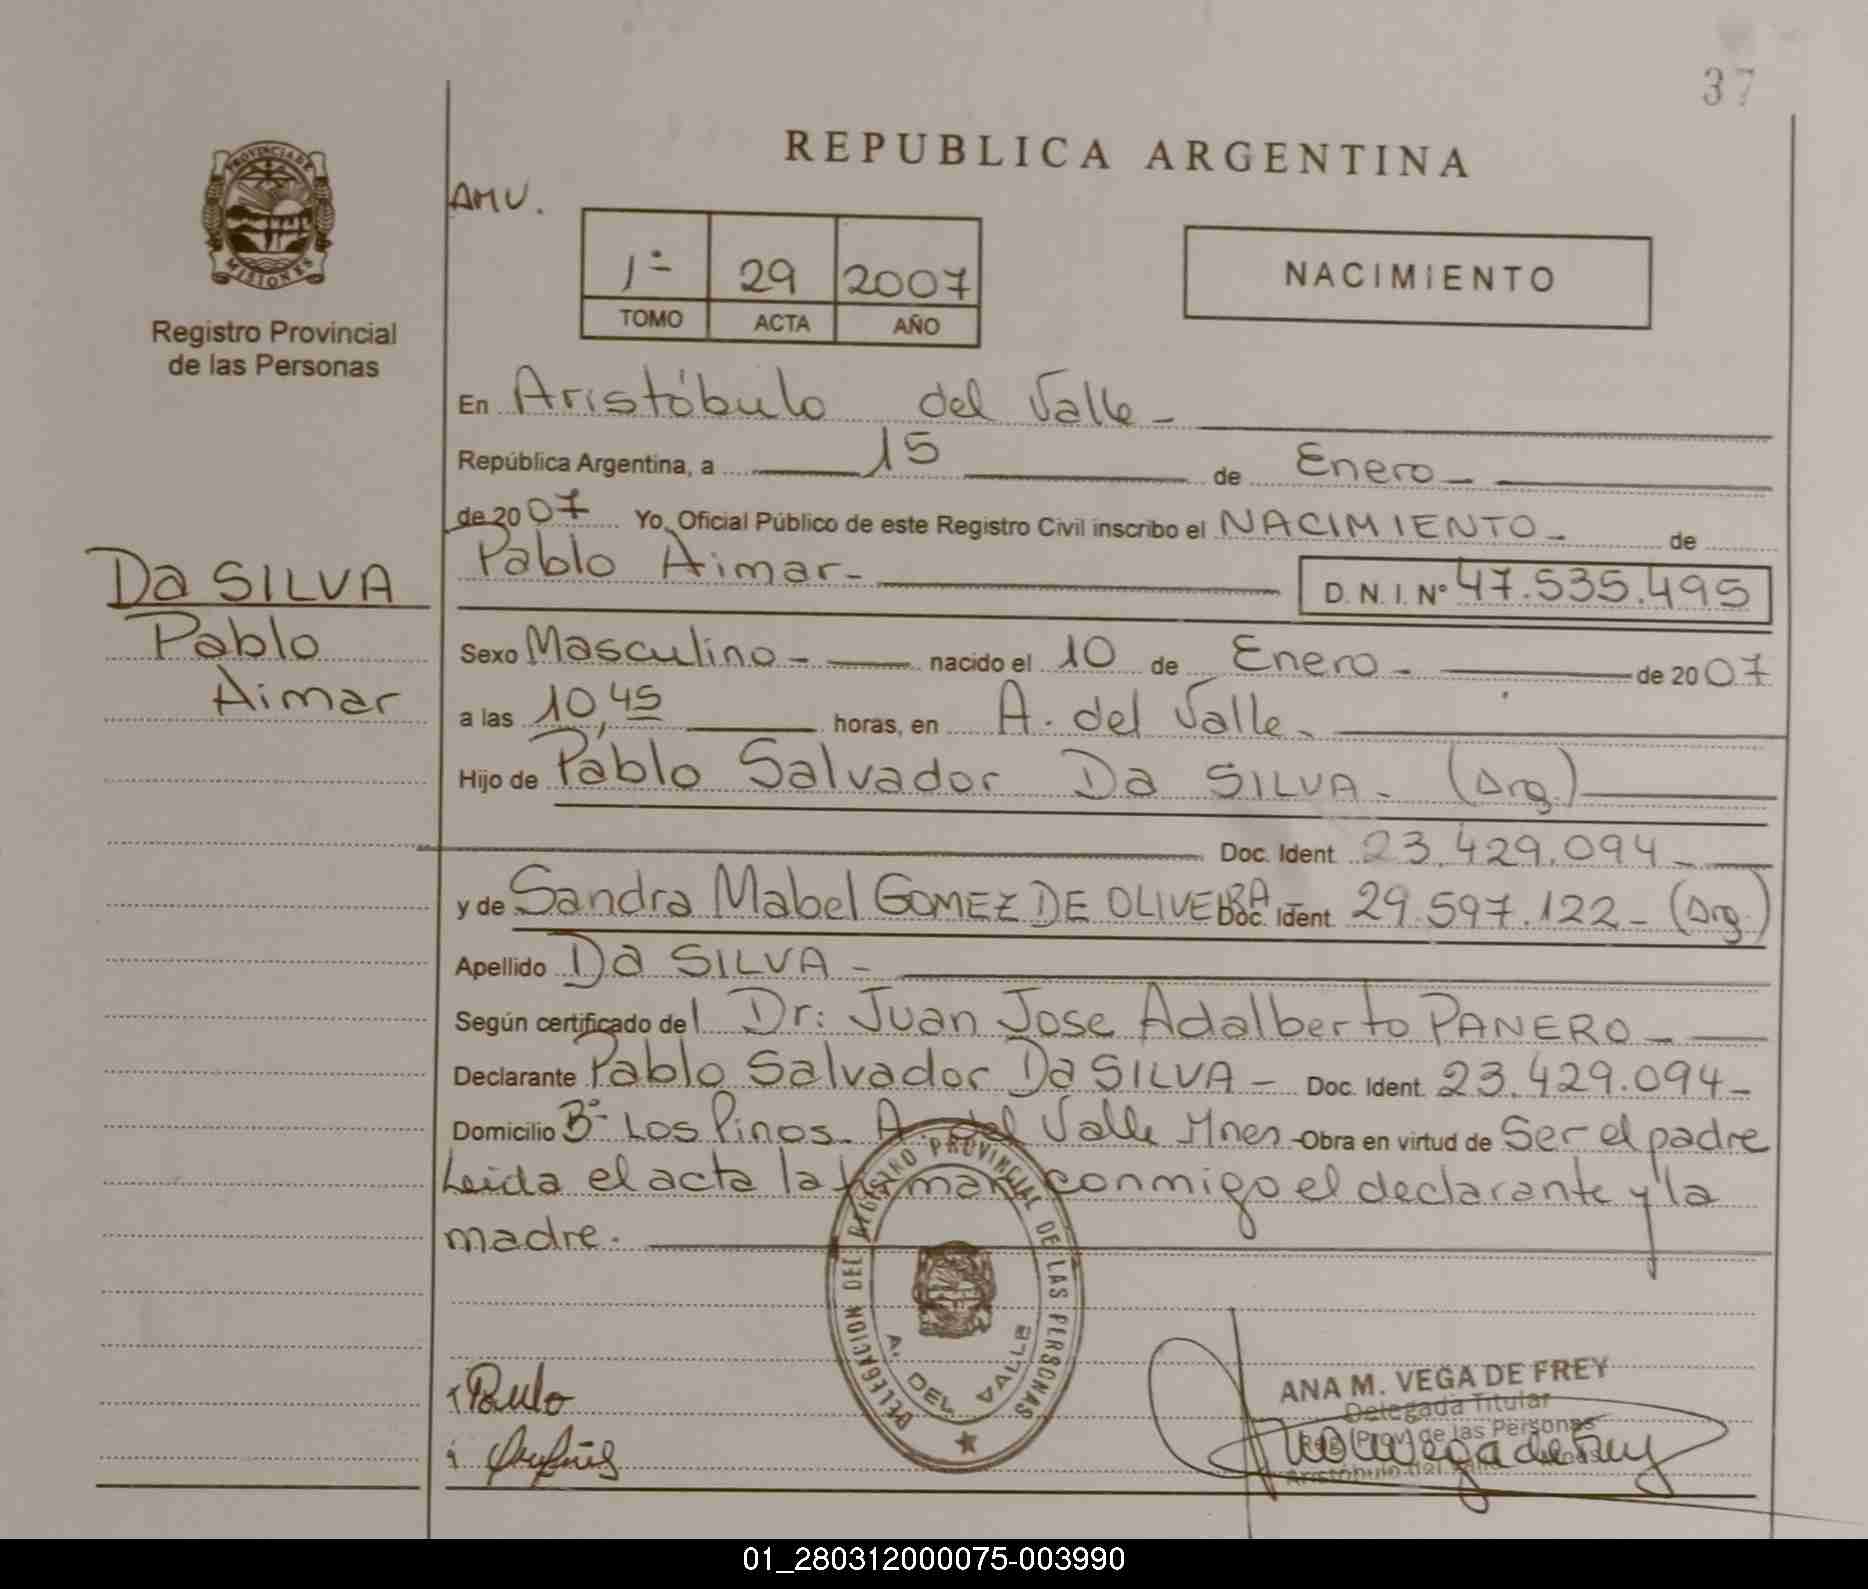 37
REPUBLICA ARGENTINA
PROVINCIA DE
MISIONES
Registro Provincial
de las Personas
AMV.
1º 29 2007
TOMO ACTA AÑO
NACIMIENTO
En Aristóbulo del Valle -
República Argentina, a 15 de Enero -
de 2007 Yo, Oficial Público de este Registro Civil inscribo el NACIMIENTO - de
Pablo Aimar - D.N.I. Nº 47.535.495
Da SILVA
Pablo
Aimar
Sexo Masculino - nacido el 10 de Enero - de 2007
a las 10,45 horas, en A. del Valle -
Hijo de Pablo Salvador Da SILVA - (Arg.)
Doc. Ident. 23.429.094 -
y de Sandra Mabel GOMEZ DE OLIVEIRA - Doc. Ident. 29.597.122 - (Arg.)
Apellido Da SILVA -
Según certificado del Dr: Juan Jose Adalberto PANERO -
Declarante Pablo Salvador Da SILVA - Doc. Ident. 23.429.094 -
Domicilio Bº Los Pinos - A. del Valle Mnes - Obra en virtud de Ser el padre
Leida el acta la firman conmigo el declarante y la
madre.
DELEGACION DEL REGISTRO PROVINCIAL DE LAS PERSONAS
A. DEL VALLE
ANA M. VEGA DE FREY
Delegada Titular
Reg. (Prov) de las Personas
Aristóbulo del
01_280312000075-003990